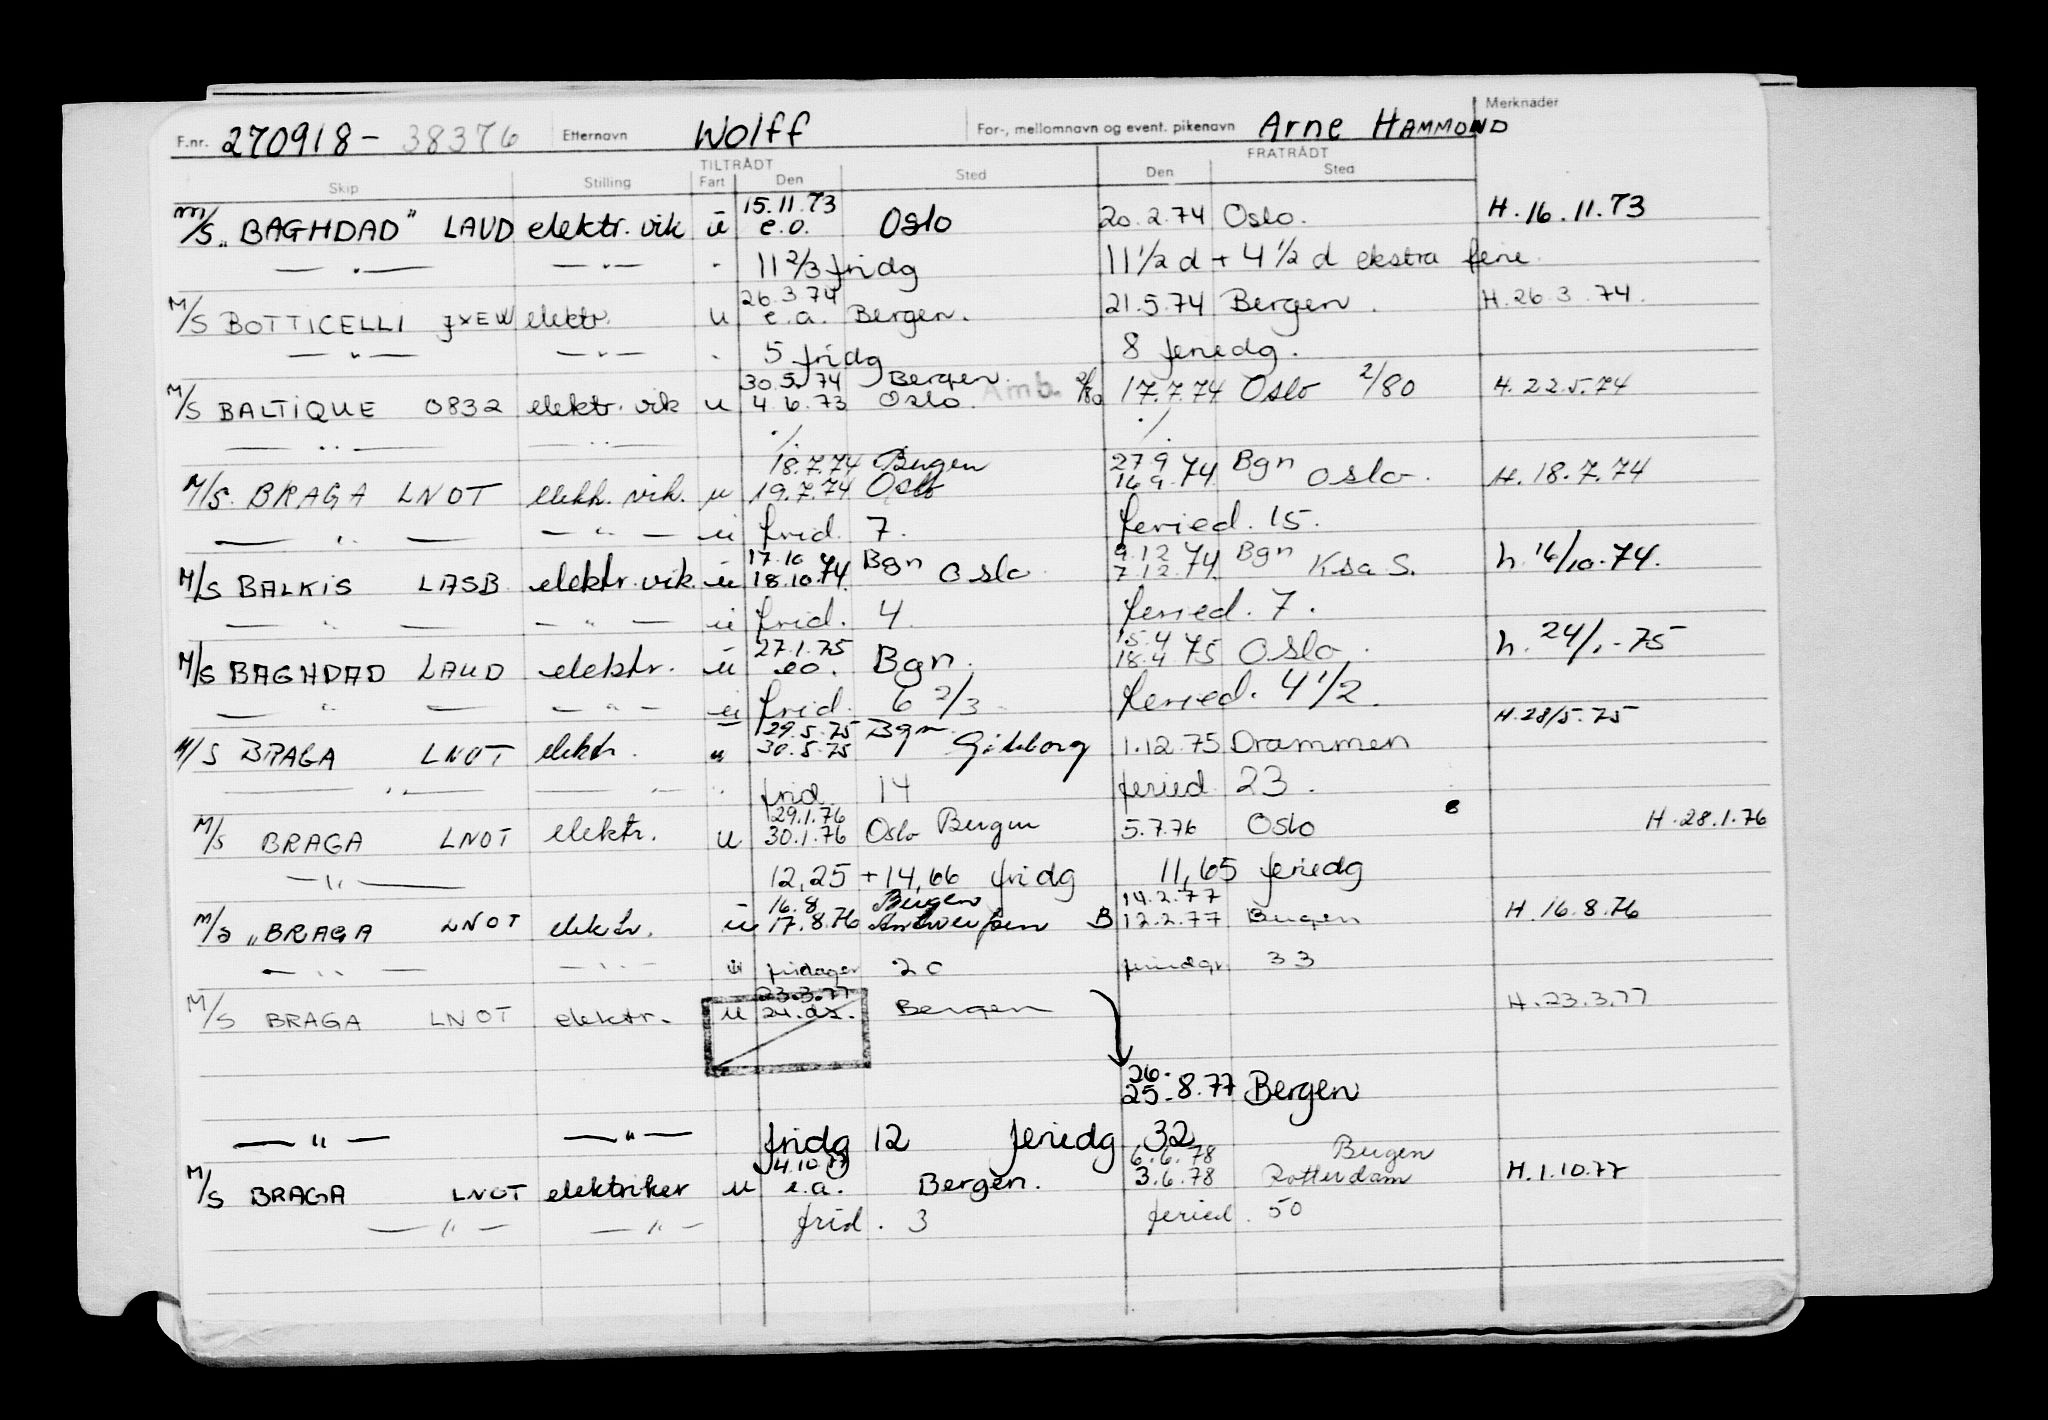 Merknader
F.nr. 270918-38376 Etternavn Wolff For-, mellomnavn og event. pikenavn Arne HAMMOND
TILTRÅDT FRATRÅDT
Skip Stilling Fart Den Sted Den Sted
15.11.73
M/S "BAGHDAD" LAUD elektr. vik u e.o. Oslo 20.2.74 Oslo. H.16.11.73
— " — — " — " 11 2/3 fridg 11 1/2 d + 4 1/2 d ekstra ferie
26.3.74
M/S BOTTICELLI JXEW elektr. u e.a. Bergen. 21.5.74 Bergen. H.26.3.74.
— " — — " — " 5 fridg 8 feriedg.
30.5.74 Bergen.
M/S BALTIQUE 0832 elektr. vik u 4.6.73 Oslo. Amb. 2/80 17.7.74 Oslo 2/80 H.22.5.74
— " — — " — ./. ./.
18.7.74 Bergen 27.9 Bgn
M/S. BRAGA LNOT elektr. vik. u 19.7.74 Oslo 16.9.74 Oslo. H.18.7.74
— " — — " — u frid. 7. feried. 15.
17.10 Bgn 9.12 Bgn
M/S BALKIS LASB elektr. vik. u 18.10.74. Oslo 7.12.74. Ksa S. h. 16/10-74.
— " — — " — u frid. 4. feried. 7.
27.1.75 15.4
M/S BAGHDAD LAUD elektr. u eo. Bgn. 18.4.75 Oslo. h. 24/1.-75
— " — — " — u frid. 6 2/3 feried. 4 1/2.
29.5.75 Bgn H.28/5.75
M/S BRAGA LNOT elektr. " 30.5.75 1.12.75 Drammen
— " — — " — " frid. 14 feried. 23.
29.1.76 Bergen
M/S BRAGA LNOT elektr. u 30.1.76 Oslo 5.7.76 Oslo H.28.1.76
— " — 12,25 + 14,66 fridg 11,65 feriedg
16.8 Bergen 14.2.77
M/S "BRAGA LNOT elektr. u 17.8.76 Antwerpen B 12.2.77 Bergen H.16.8.76
— " — — " — u fridager 20 feriedgr. 33
23.3.77
M/S BRAGA LNOT elektr. u 24. ds. Bergen H.23.3.77
26.
25.8.77 Bergen
— " — — " — fridg 12 feriedg 32
4.10.77 6.6.78 Bergen
M/S BRAGA LNOT elektriker u e.a. Bergen. 3.6.78 Rotterdam H.1.10.77
— " — — " — frid. 3 feried. 50